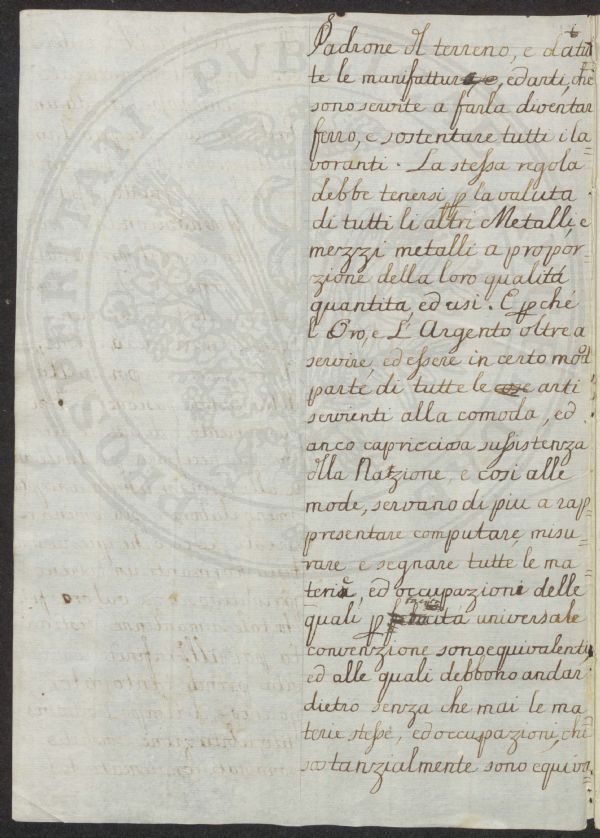 6
Padrone del terreno, e di tut
te le manifatture, ed arti, che
sono servite a farla diventar
ferro, e sostentare tutti i la
voranti. La stessa regola
debbe tenersi p la valuta
di tutti li altri Metalli, e
mezzi metalli a propor=
zione della loro qualitá
quantita, ed usi. E p ché
l'Oro, e L'Argento oltre a
servire, ed essere in certo modo
parte di tutte le cose arti
servienti alla comoda, ed
anco capricciosa sussistenza
della Natzione, e così alle
mode, servano di piu a rap=
presentare computare, misu=
rare e segnare tutte le ma=
terie, ed occupazioni delle
quali p universale
convenzione sono equivalenti,
ed alle quali debbono andar
dietro senza che mai le ma=
terie stesse, ed occupazioni, che
sostanzialmente sono equiva=
PROSPERITATI PVBLI